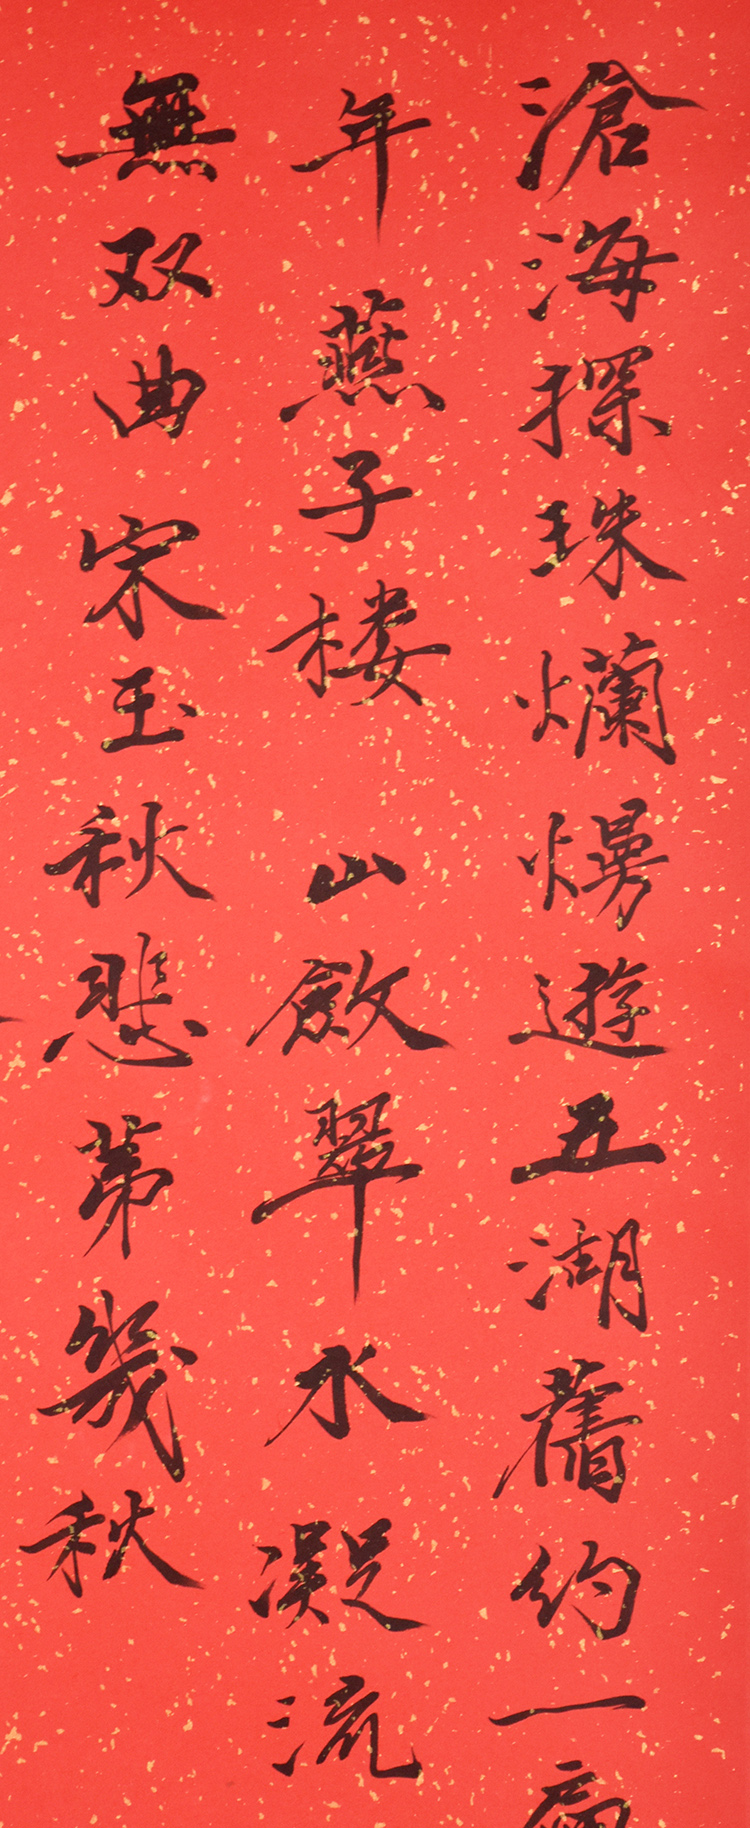 滄海探珠爛熳遊五湖舊約一
年燕子楼山斂翠水凝流
無双曲宋玉秋悲苐幾秋